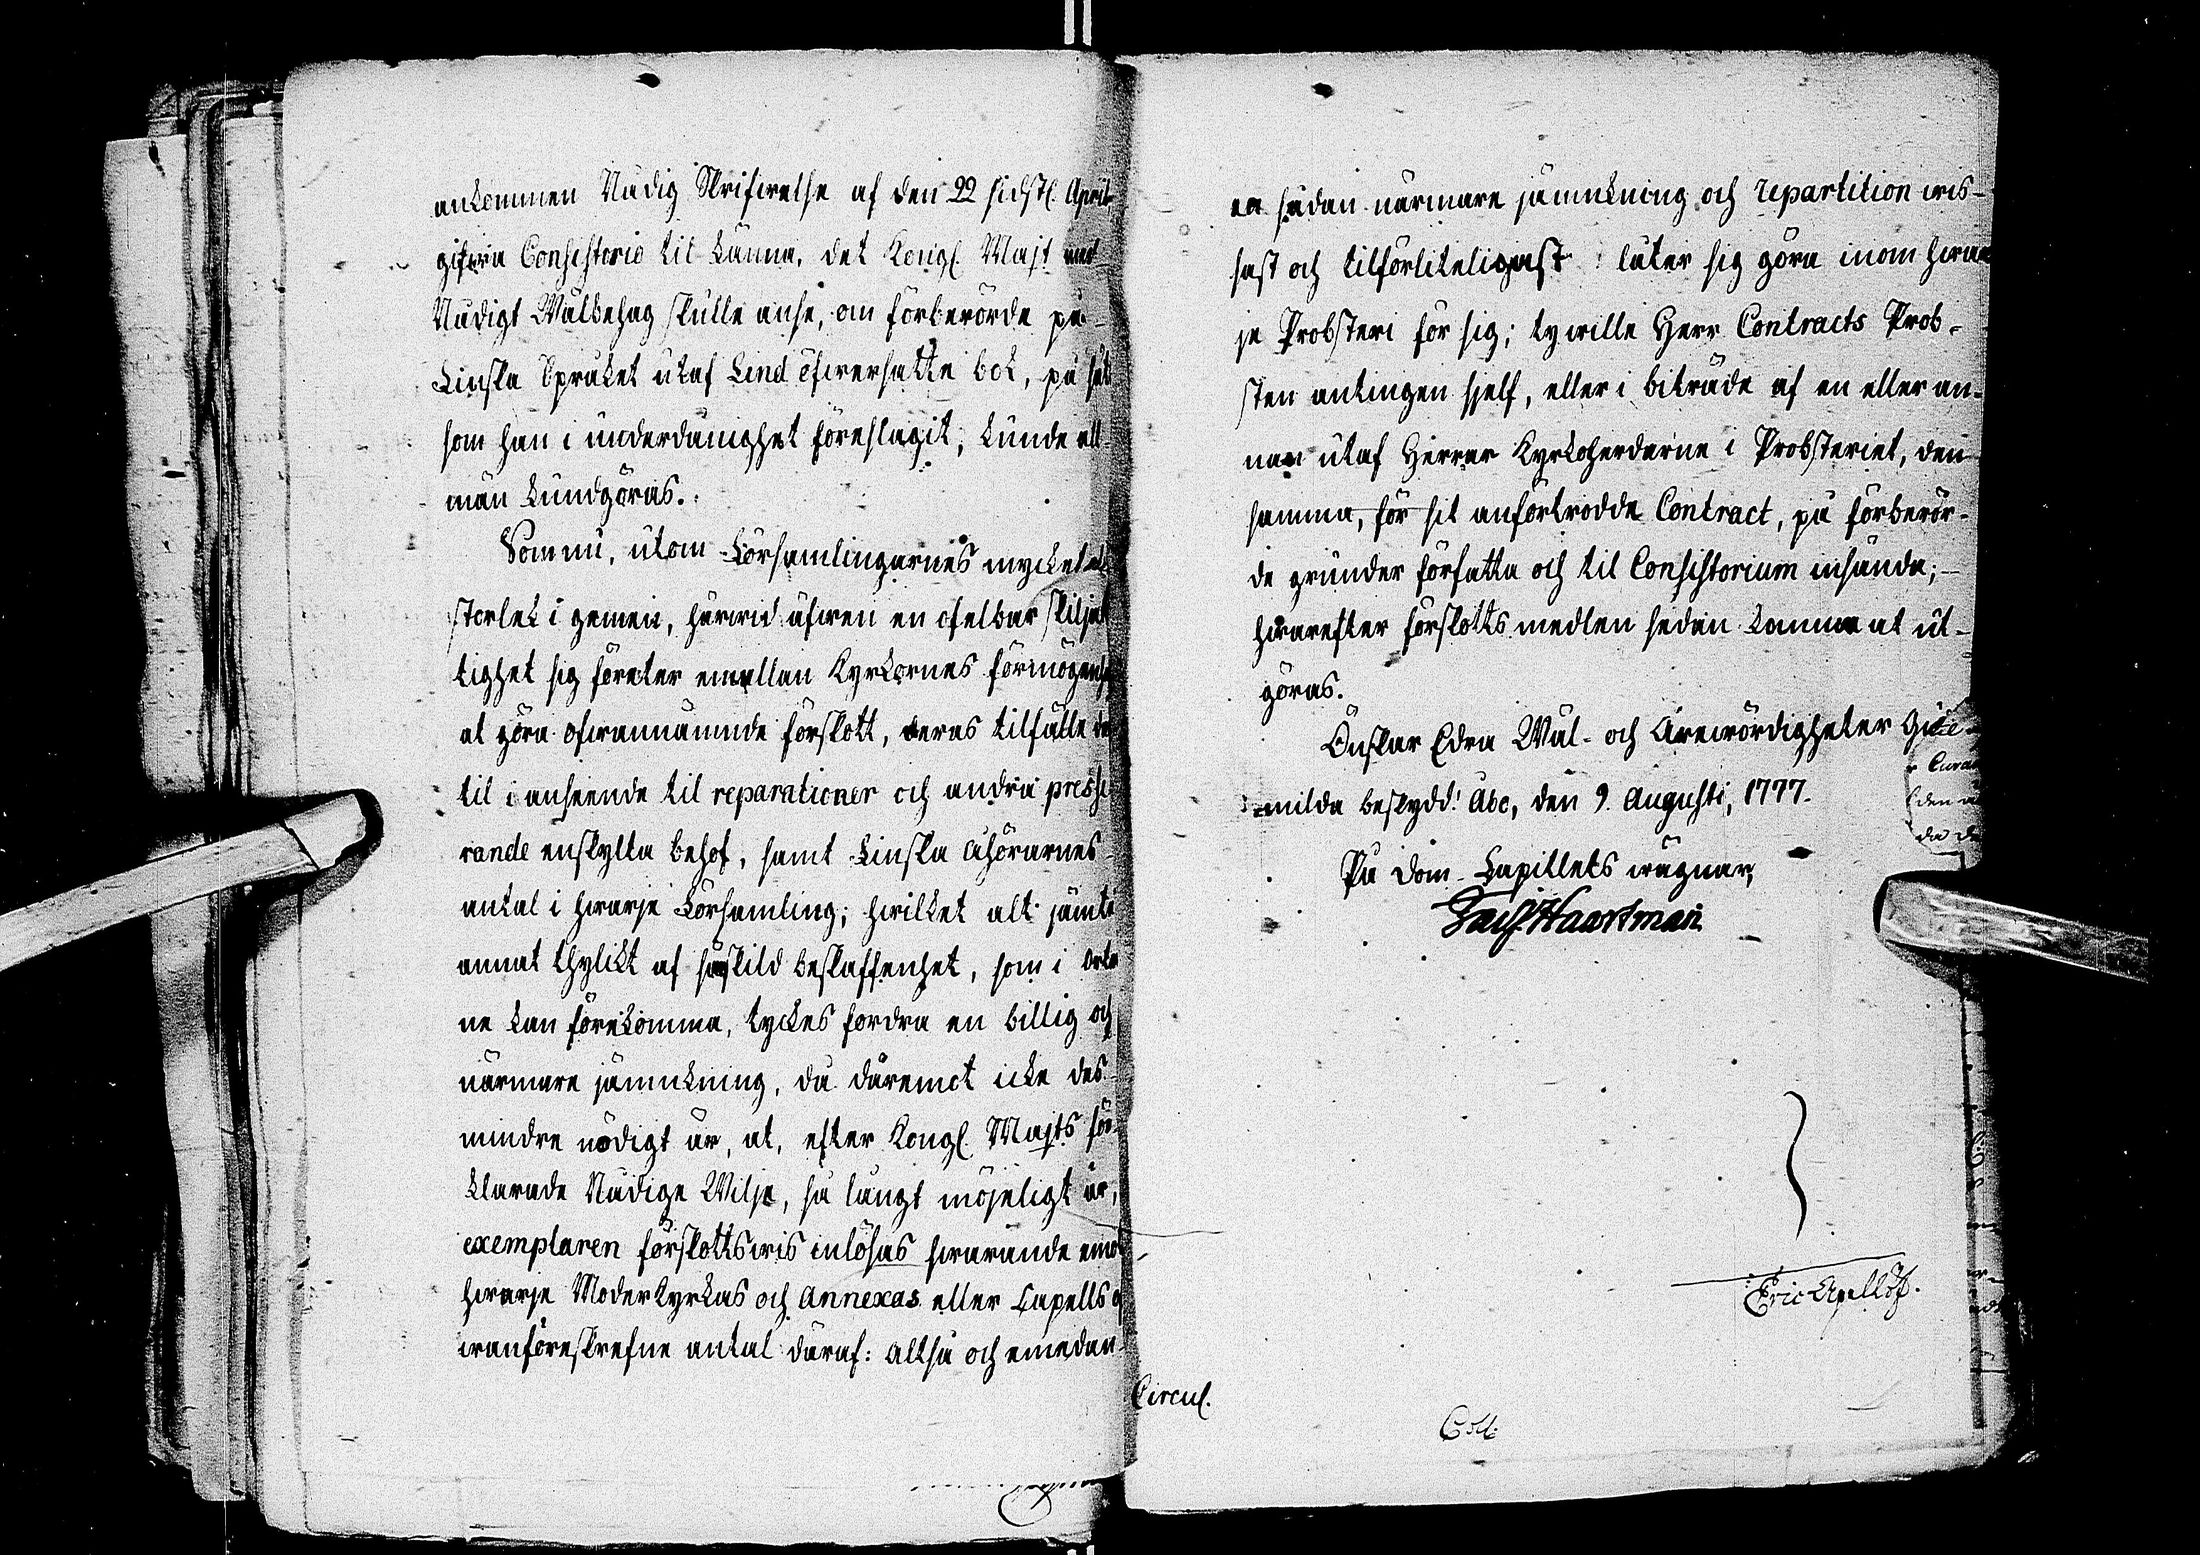 ankommen Nådig Skrifwelse af den 22 sidstl. April
gifwa Consistorio til känna, det Kongl. Maj:t med
Nådigt Wälbehag skulle anse, om förberörde på
Finska Språket utaf Lind öfwersatte bok, på sät
som han i underdånighet föreslagit, kunde all-
män kundgöras.
Som nu, utom Församlingarnes myckenhet
storlek i gemen, härwid äfwen en ofelbar skiljak-
tighet sig företer emellan Kyrkornes förmögenhet
at göra ofwannämnde förskott, deras tilfälle der
til i anseende til reparationer och andra presse-
rande enskylta behof, samt Finska åhörarnes
antal i hwarje Församling; hwilket alt jämte
annat thylikt af särskild beskaffenhet, som i orte
ne kan förekomma, tyckes fordra en billig och
närmare jämnkning, då däremot icke des-
mindre nödigt är, at, efter Kongl. Maj:ts för-
klarade Nådige Wilje, så långt möjeligt är,
exemplaren förskottswis inlösas hwarande emot
hwarje Moderkyrkas och Annexas eller Capells of
wanföreskrefne antal däraf: altså och emedan
en sådan närmare jämnkning och repartition wis-
sast och tilförliteligast låter sig göra inom hwar
je Probsteri för sig; ty wille Herr Contracts Prob-
sten antingen sjelf, eller i biträde af en eller an-
nan utaf Herrar Kyrkoherdarne i Probsteriet, den-
samma, för sit anförtrodde Contract, på förberör-
de grunder författa och til Consistorium insända;
hwarefter förskotts medlen sedan komma at ut-
göras.
Önskar Edra Wäl- och Ärewördigheter Gude-
milda beskydd! Åbo, den 9. Augusti, 1777.
På Dom-Capitlets wägnar,
Haartman
Eric Apellöf.
Circul.